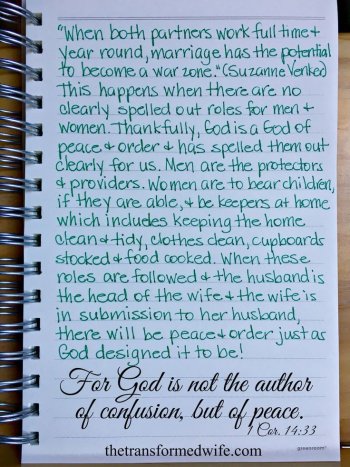 "When both partners work full time &
year round, marriage has the potential
to become a war zone." (Suzanne Venker)
This happens when there are no
clearly spelled out roles for men &
women. Thankfully, God is a God of
peace & order & has spelled them out
clearly for us. Men are the protectors
& providers. Women are to bear children,
if they are able, & be keepers at home
which includes keeping the home
clean & tidy, clothes clean, cupboards
stocked & food cooked. When these
roles are followed & the husband is
the head of the wife & the wife is
in submission to her husband,
there will be peace & order just as
God designed it to be!
For God is not the author
of confusion, but of peace.
1 Cor. 14:33
greenroom
thetransformedwife.com